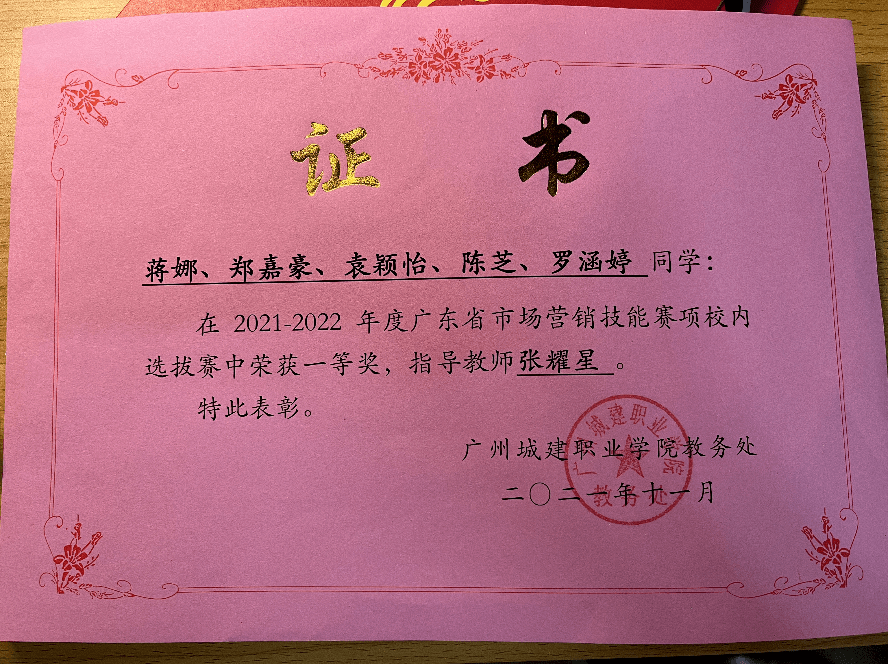 证书
蒋娜、郑嘉豪、袁颖怡、陈芝、罗涵婷 同学：
在 2021-2022 年度广东省市场营销技能赛项校内
选拔赛中荣获一等奖，指导教师张耀星 。
特此表彰。
广州城建职业学院教务处
二〇二一年十一月
广州城建职业学院
教务处